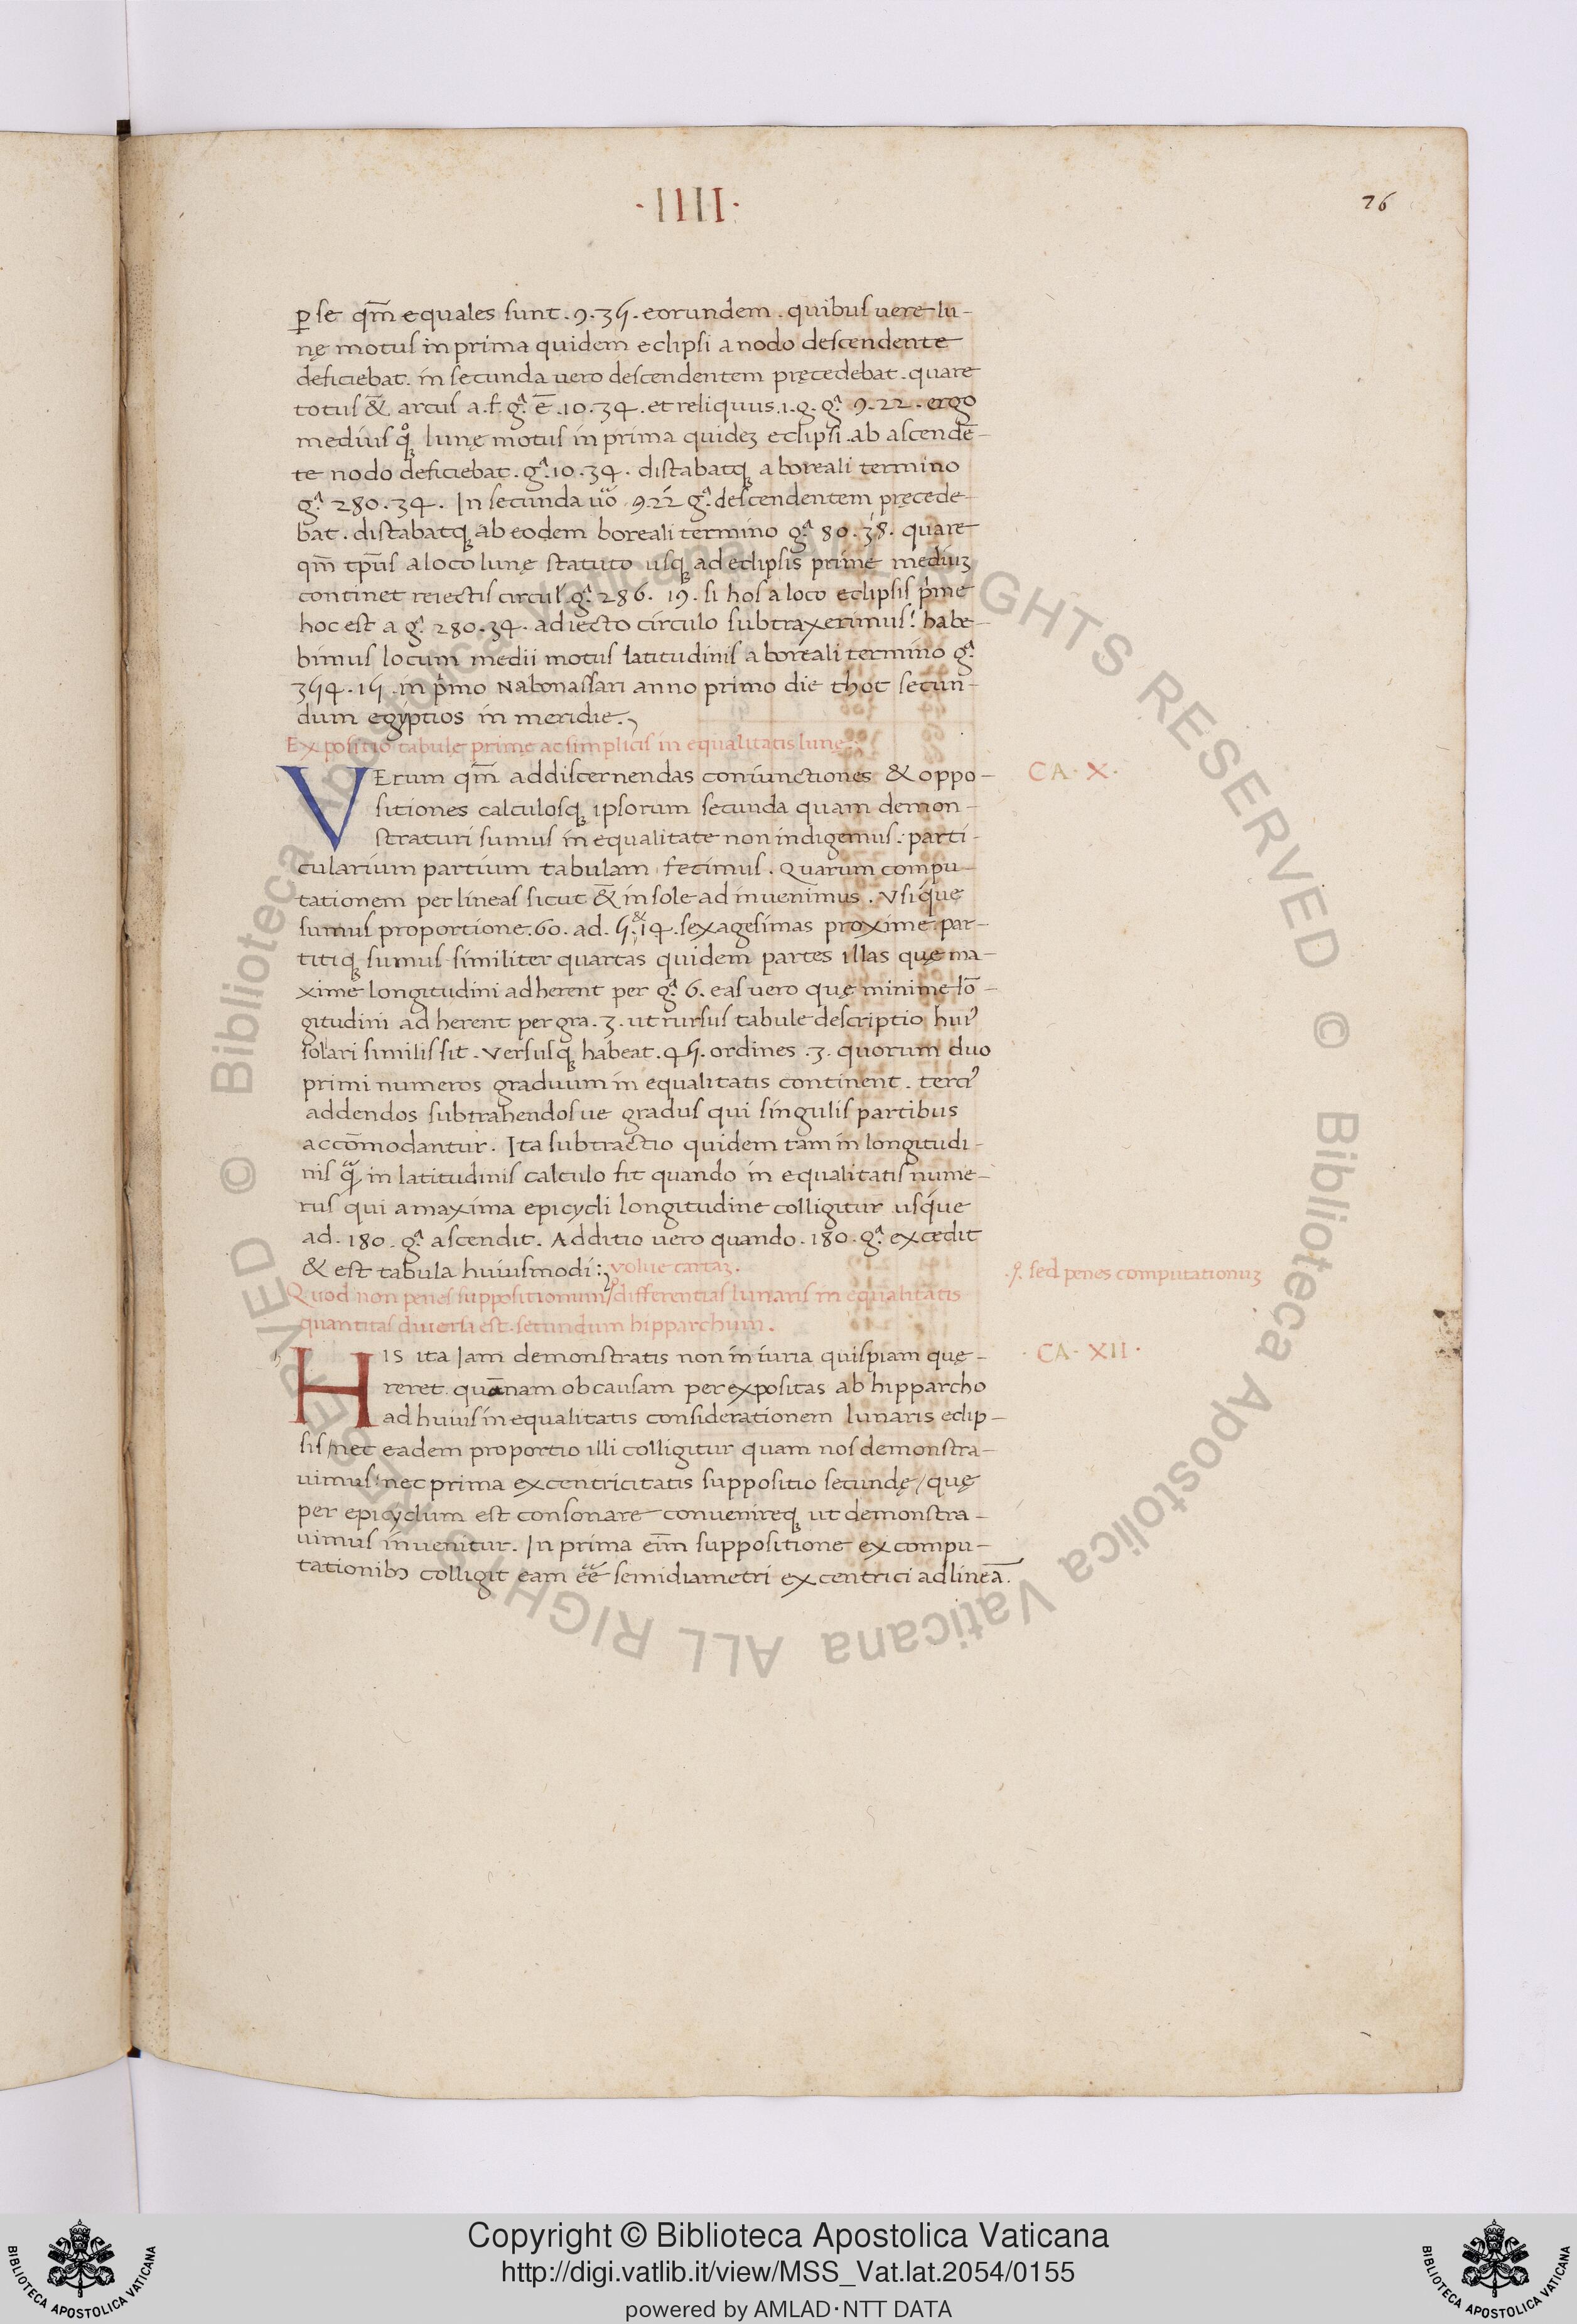 ·IIII·
76
ꝑ se qm̄ equales sunt . 9 . 35 . eorundem . quibus vere lu-
nę motus in prima quidem eclipsi a nodo descendente
deficiebat . in secunda vero descendentem pręcedebat . quare
totus & arcus a.f. gᵃ ē . 10 . 34 . et reliquus . 1 . g . gᵃ 9 . 22 . ergo
medius qꝫ lunę motus in prima quideꝫ eclipsi . ab ascendē-
te nodo deficiebat . gᵃ 10 . 34 . distabatqꝫ a boreali termino
gᵃ 280 . 34 . In secunda uº 9 . 22 gᵃ descendentem pręcede-
bat . distabatqꝫ ab eodem boreali termino gᵃ 80 . 38 . quare
qm̄ tp̄us a loco lunę statuto usqꝫ ad eclipsis prime mediuꝫ
continet reiectis circul' gᵃ 286 . 19 . si hos a loco eclipsis p'me
hoc est a gᵃ 280 . 34 . adiecto circulo subtraxerimus : habe-
bimus locum medii motus latitudinis a boreali termino gᵃ
354 . 15 . in p'mo Nabonassari anno primo die thot secun-
dum egyptios in meridie .
Expositio tabulę primę ac simplicis inequalitatis lunę
CA · X ·
VErum qm̄ ad discernendas coniunctiones & oppo-
sitiones calculosqꝫ ipsorum secunda quam demon-
straturi sumus inequalitate non indigemus : parti-
cularium partium tabulam fecimus . Quarum compu-
tationem per lineas sicut & in sole adinvenimus . Usique
sumus proportione . 60 . ad . 5 . & 14 . sexagesimas proxime . par-
titiqꝫ sumus similiter quartas quidem partes illas quę ma-
xime longitudini adherent per gᵃ 6 . eas vero quę minime lō-
gitudini adherent per gra . 3 . ut rursus tabule descriptio hui9
solari similis sit . Versusqꝫ habeat . 45 . ordines . 3 . quorum duo
primi numeros graduum inequalitatis continent . terci9
addendos subtrahendosue gradus qui singulis partibus
accōmodantur . Ita subtractio quidem tam in longitudi-
nis qᵃ in latitudinis calculo fit quando inequalitatis nume-
rus qui a maxima epicycli longitudine colligitur usque
ad . 180 . gᵃ ascendit . Additio vero quando . 180 . gᵃ excedit
& est tabula huiusmodi : volue cartaꝫ .
.ꝯ. sed penes computationuꝫ
Quod non penes suppositionum / differentias lunaris inequalitatis
quantitas diversa est . secundum hipparchum .
· CA · XII ·
HIS ita Iam demonstratis non iniuria quispiam quę-
reret quānam ob causam per expositas ab hipparcho
ad huius inequalitatis considerationem lunaris eclip-
sis / nec eadem proportio illi colligitur quam nos demonstra-
uimus / nec prima excentricitatis suppositio secundę / quę
per epicyclum est consonare convenireqꝫ ut demonstra-
uimus invenitur . In prima eīm suppositione ex compu-
tationibꝫ colligit eam eē semidiametri excentrici ad lineā .